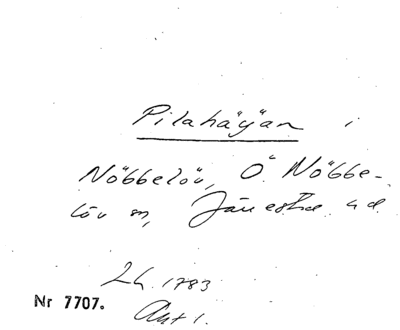 Pilahäijan i
Nöbbelöv, Ö Nöbbe-
löv sn, Järrestad hd
L4. 1783
Nr 7707. Akt 1.